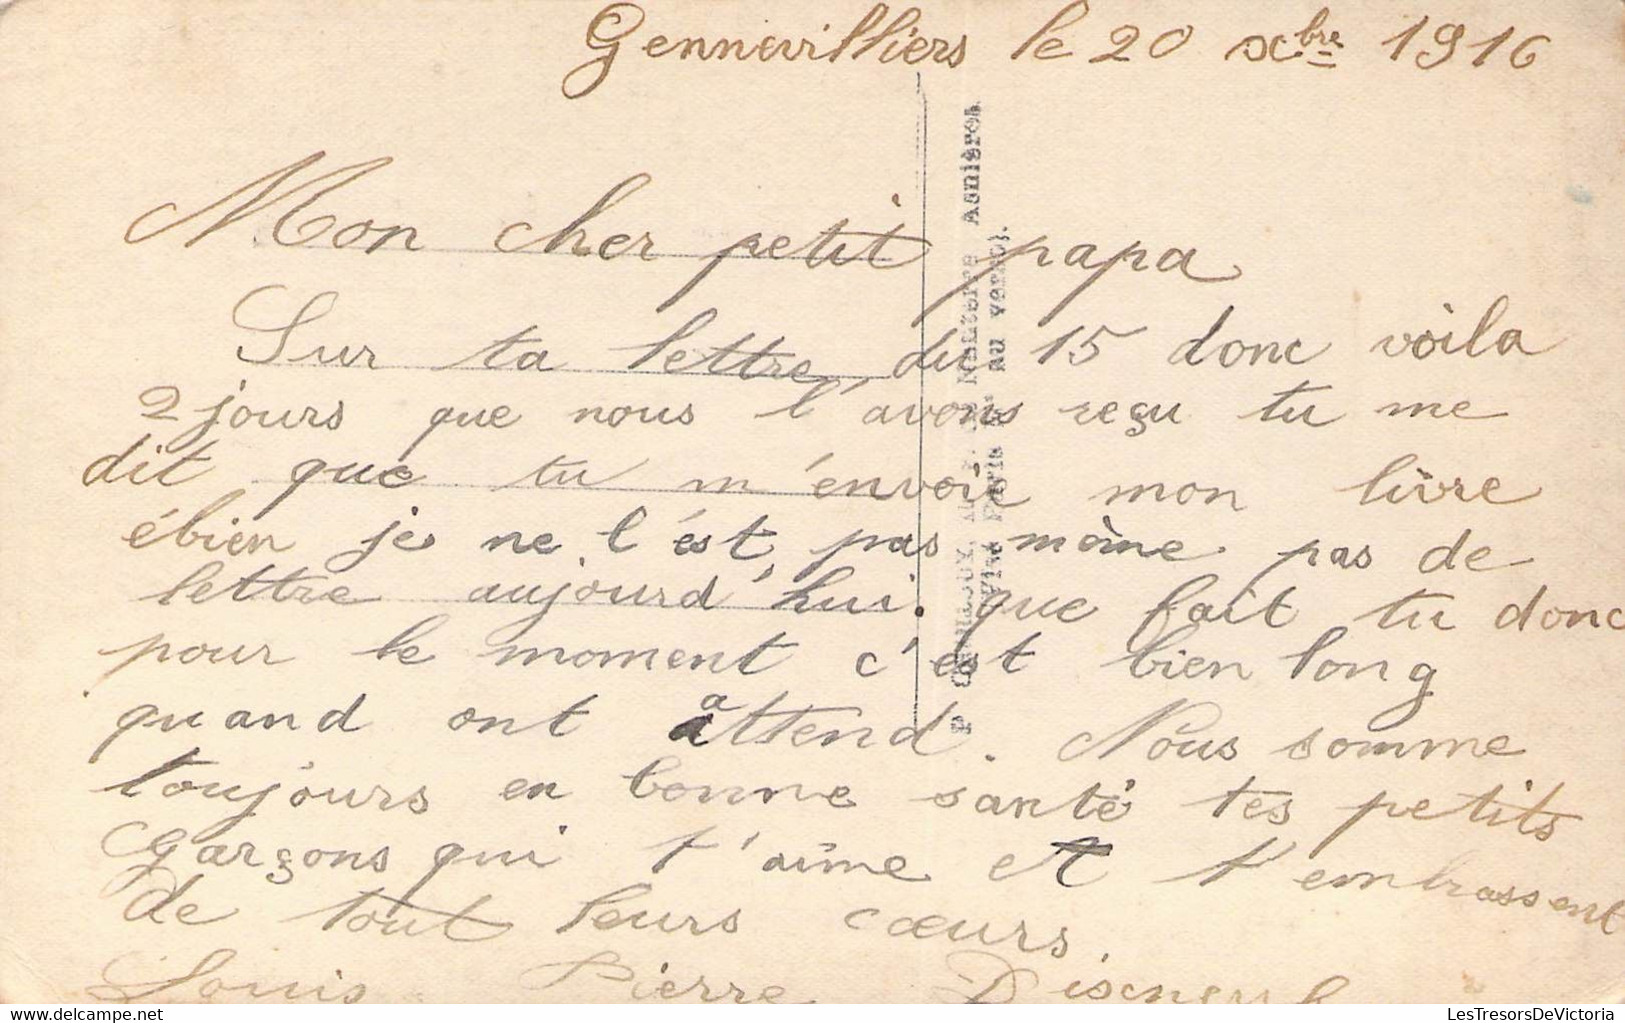 Gennevilliers le 20 xbre 1916
Mon cher petit papa
Sur ta lettre du 15 donc voila
2 jours que nous l'avons reçu tu me
dit que tu m'envoie mon livre
ébien je ne l'est pas même pas de
lettre aujourd'hui. que fait tu donc
pour le moment c'est bien long
quand ont attend. Nous somme
toujours en bonne santé tes petits
garçons qui t'aime et t'embrassent
de tout leurs cœurs.
Louis Pierre
Nanterre Asnières
Paris au verso).
LesTresorsDeVictoria
www.delcampe.net